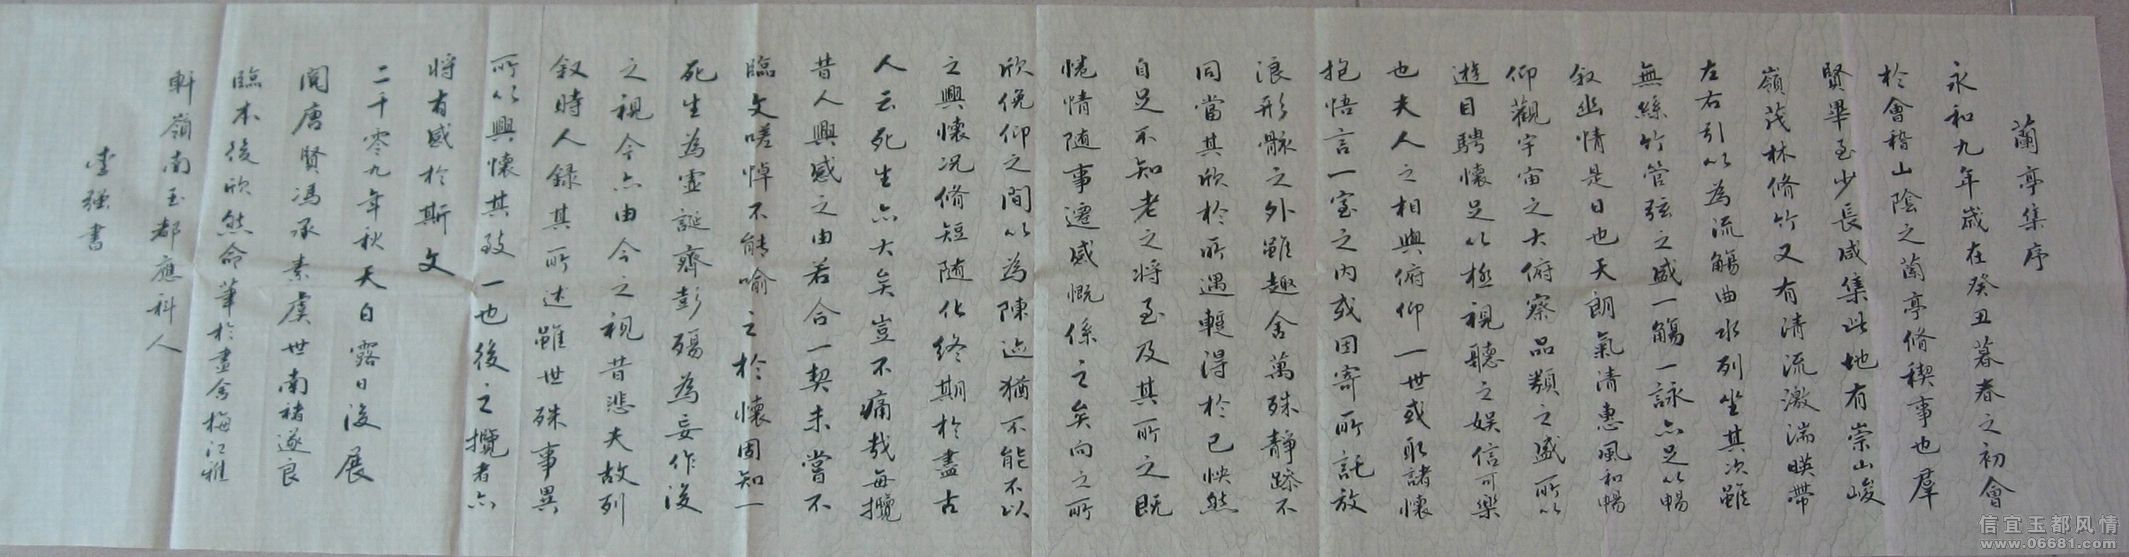 蘭亭集序
永和九年歲在癸丑暮春之初會
於會稽山陰之蘭亭脩禊事也羣
賢畢至少長咸集此地有崇山峻
嶺茂林脩竹又有清流激湍暎帶
左右引以為流觴曲水列坐其次雖
無絲竹管弦之盛一觴一詠亦足以暢
叙幽情是日也天朗氣清惠風和暢
仰觀宇宙之大俯察品類之盛所以
遊目騁懷足以極視聽之娛信可樂
也夫人之相與俯仰一世或取諸懷
抱悟言一室之內或因寄所託放
浪形骸之外雖趣舍萬殊靜躁不
同當其欣於所遇蹔得於己怏然
自足不知老之將至及其所之既
惓情随事遷感慨係之矣向之所
欣俛仰之間以為陳迹猶不能不以
之興懷况脩短随化終期於盡古
人云死生亦大矣豈不痛哉每攬
昔人興感之由若合一契未嘗不
臨文嗟悼不能喻之於懷固知一
死生為虛誕齊彭殤為妄作後
之視今亦由今之視昔悲夫故列
叙時人録其所述雖世殊事異
所以興懷其致一也後之攬者亦
将有感於斯文
二千零九年秋天白露日後展
閱唐賢馮承素虞世南褚遂良
臨本後欣然命筆於畫舍梅江雅
軒嶺南玉都應科人
書
信宜玉都风情
www.06681.com